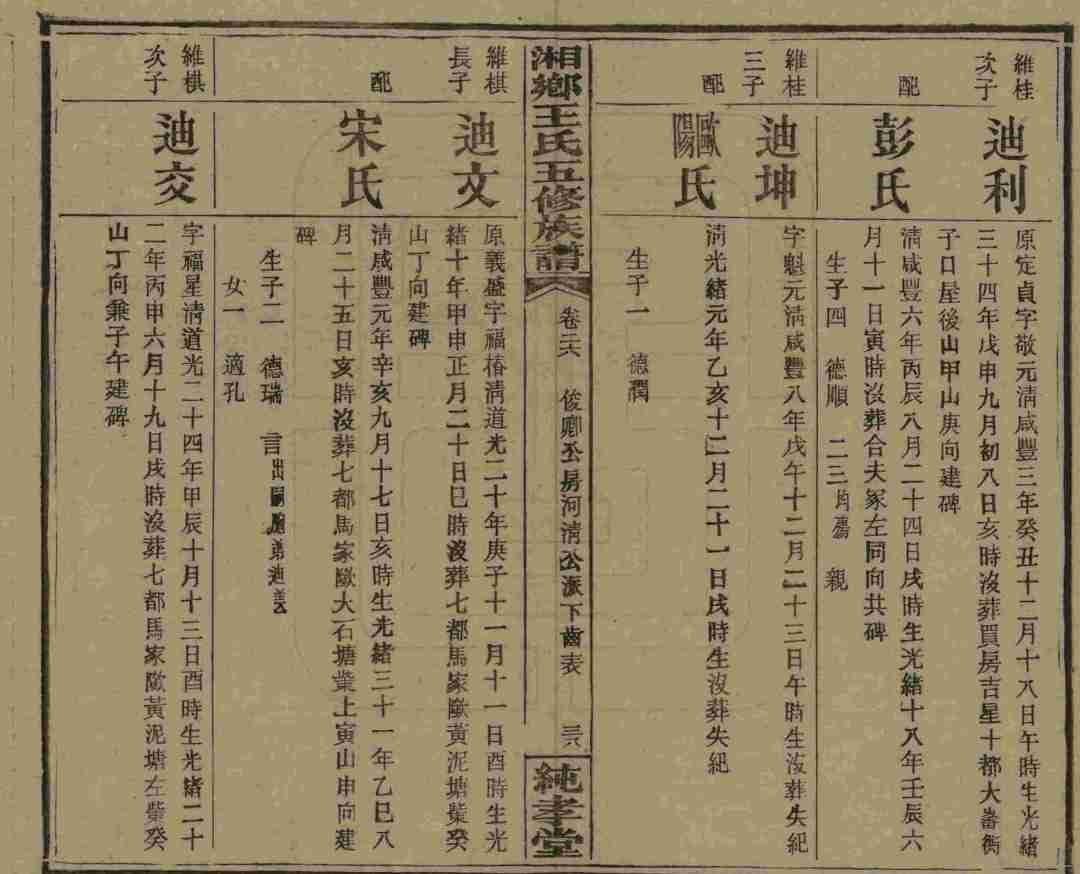 維桂
次子
迪利
原定貞字敬元清咸豐三年癸丑十二月十八日午時生光緒
三十四年戊申九月初八日亥時沒葬買房吉星十都大畨衡
子口屋後山甲山庚向建碑
配
彭氏
清咸豐六年丙辰八月二十四日戌時生光緒十八年壬辰六
月十一日寅時沒葬合夫冢左同向共碑
生子四 德順 二三均殤 親
維桂
三子
迪坤
字魁元清咸豐八年戊午十二月二十三日午時生沒葬失紀
配
氏
清光緒元年乙亥十二月二十一日戌時生沒葬失紀
生子一 德潤
湘鄉王氏五修族譜
卷二六 俊卿公房河清公派下齒表 三六
純孝堂
維棋
長子
迪文
原義盛字福椿清道光二十年庚子十一月十一日酉時生光
緒十年甲申正月二十日巳時沒葬七都馬家𡑞黃泥塘𡶶癸
山丁向建碑
配
宋氏
清咸豐元年辛亥九月十七日亥時生光緒三十一年乙巳八
月二十五日亥時沒葬七都馬家大石塘上寅山申向建
碑
生子二 德瑞 言出嗣胞弟迪義
女一 適孔
維棋
次子
迪交
字福星清道光二十四年甲辰十月十三日酉時生光緒二十
二年丙申六月十九日戌時沒葬七都馬家黃泥塘左癸
山丁向兼子午建碑